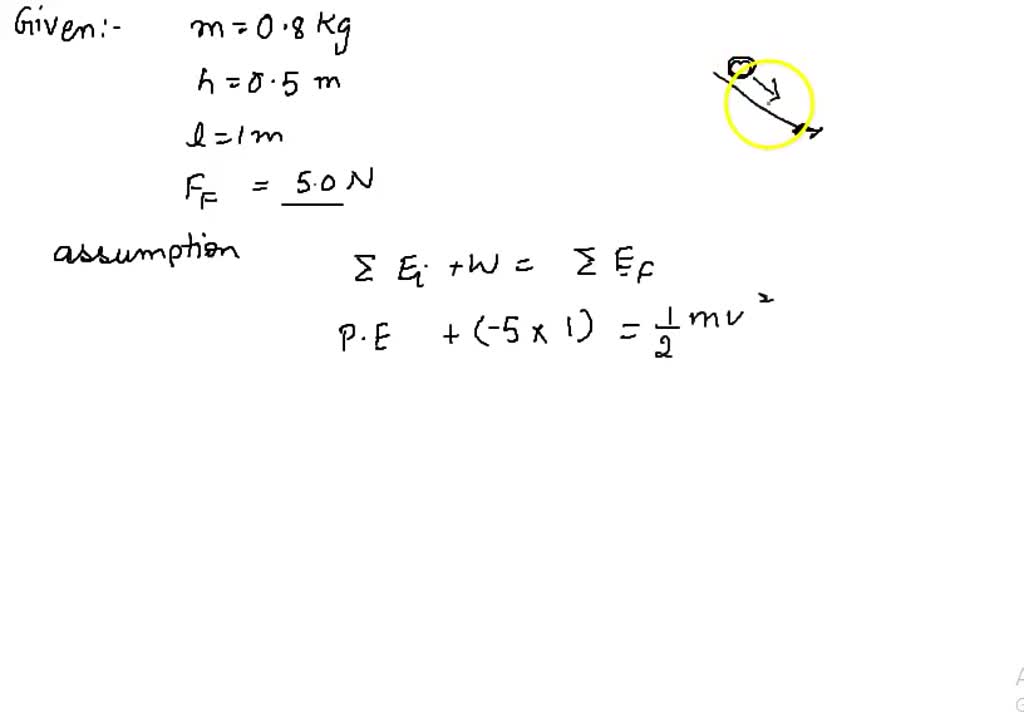 Given:- m = 0.8 Kg
h = 0.5 m
l = 1 m
F_F = 5.0 N
assumption
Σ E_i + W = Σ E_F
P.E + (-5 × 1) = 1/2 mv²